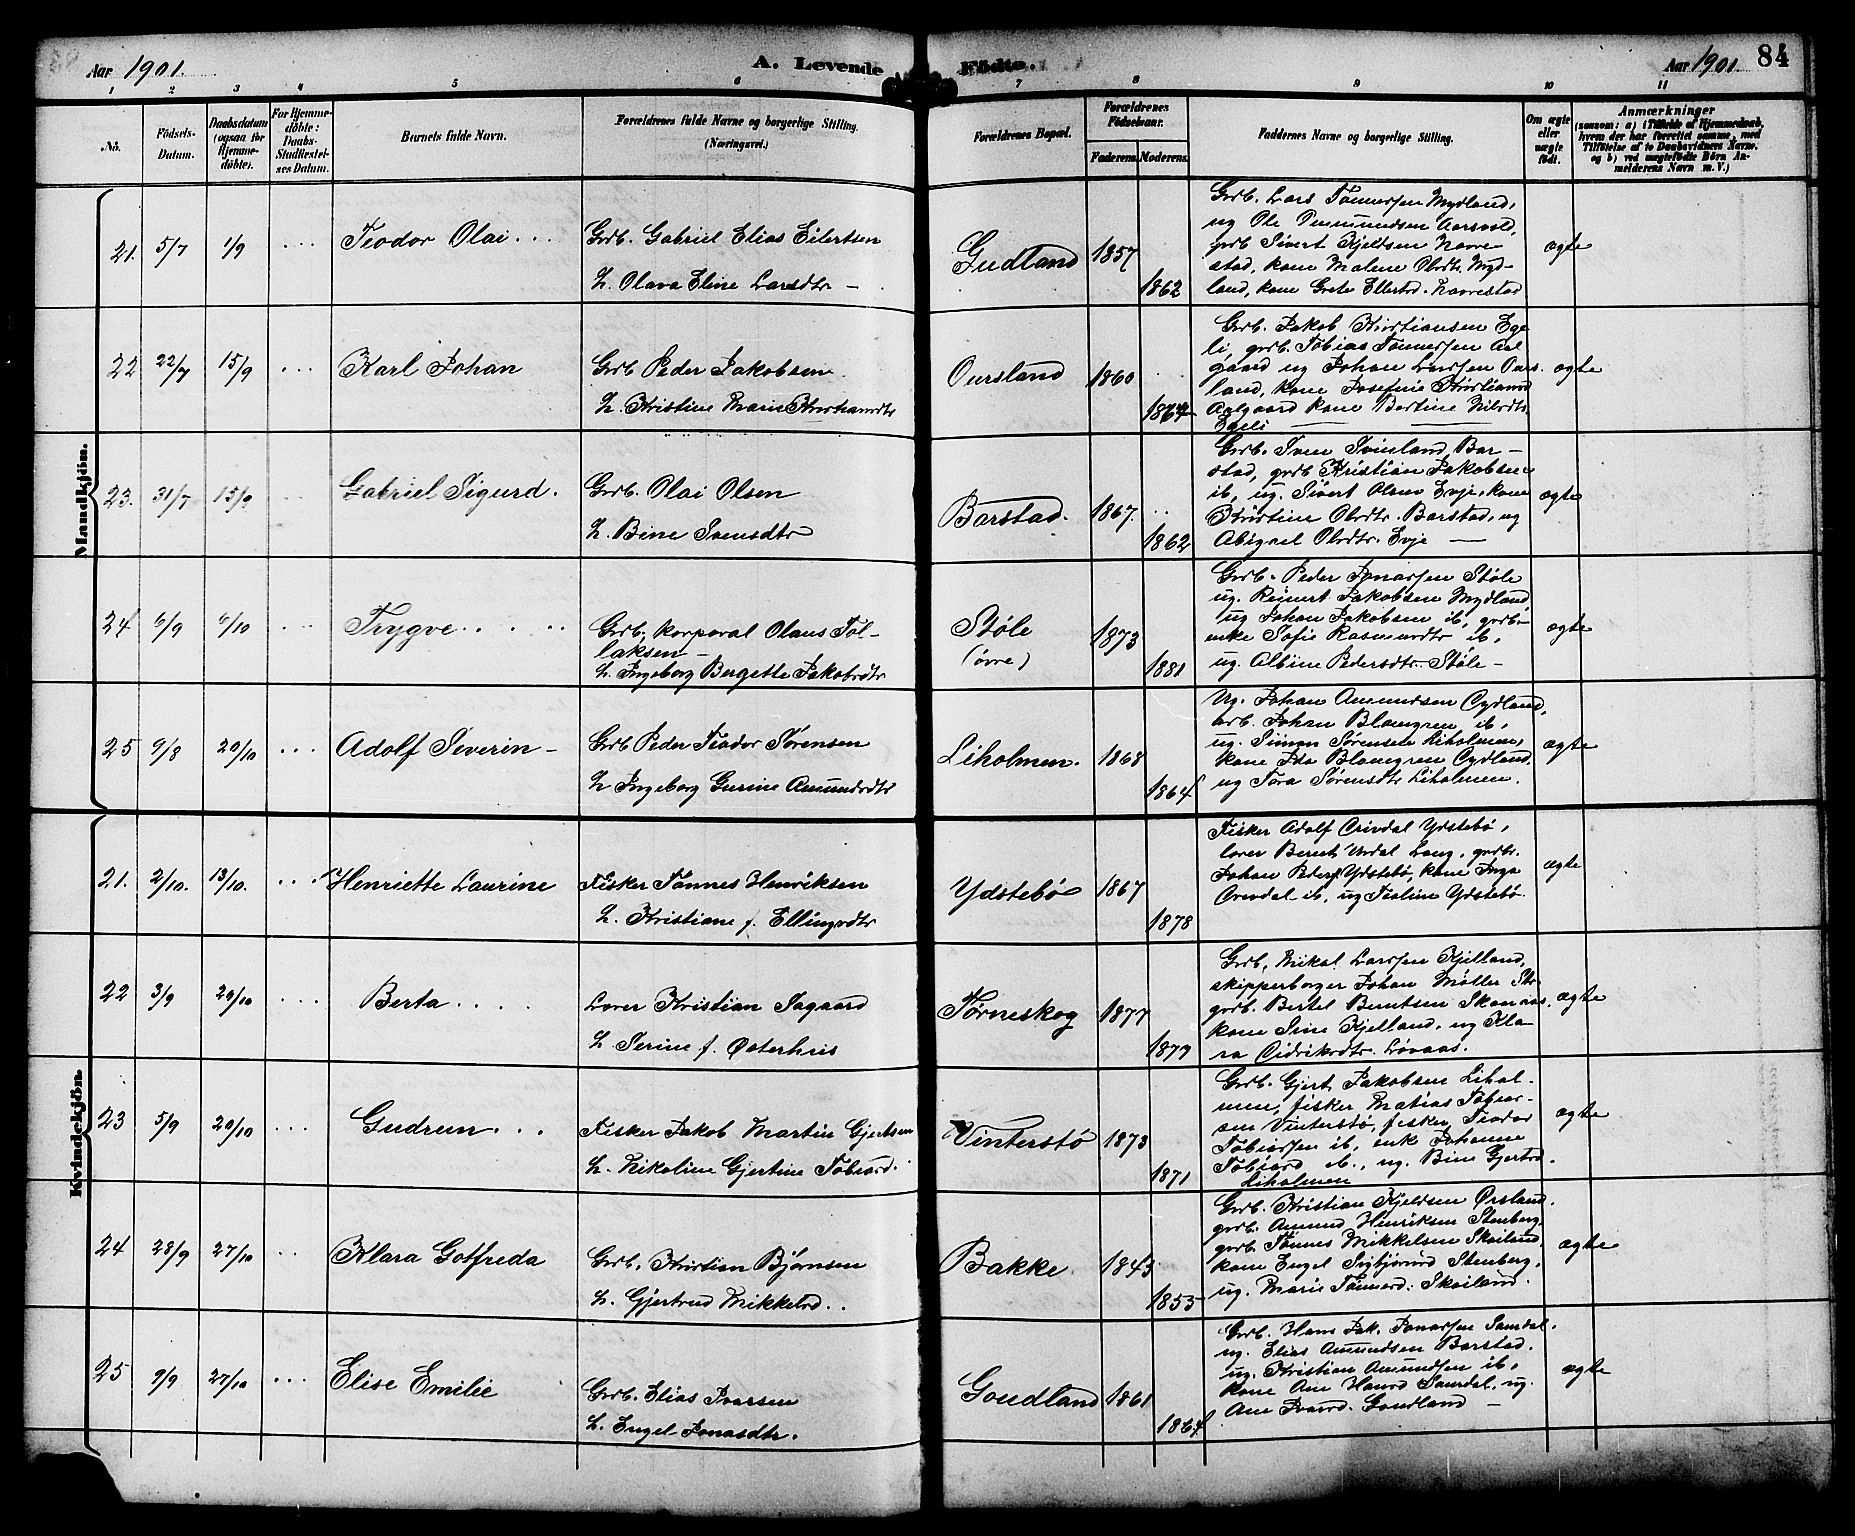 Aar 1901.
A. Levende Fødte.
Aar 1901. 84
1 2 3 4 5 6 7 8 9 10 11
No. Fødsels-Datum. Daabsdatum (ogsaa for Hjemmedøbte). For Hjemmedøbte: Daabs-Stadfæstelses Datum. Barnets fulde Navn. Forældrenes fulde Navne og borgerlige Stilling. (Næringsvei.) Forældrenes Bopæl. Forældrenes Fødselsaar. Faderens. Moderens. Faddernes Navne og borgerlige Stilling. Om ægte eller uægte født. Anmærkninger
(saasom: a) i Tilfælde af Hjemmedaab,
hvem der har forrettet samme, med
Tilføielse af to Daabsvidners Navne,
og b) ved uægtefødte Børn Anmelderens Navn m. V.)
Mandkjøn.
21. 5/7 1/9 Teodor Olai
Grb. Gabriel Elias Eilertsen
h. Olava Eline Larsdtr
Gudland 1857 1862
Grb. Lars Tønnesen Mydland,
ug Ole Ommundsen Aarsvold,
grb Sivert Kjeldsen Navre-
stad, kone Malene Olsdtr. Myd-
land, kone Grete Ellertsd. Navrestad
ægte
22 22/7 15/9 Karl Johan
Grb Peder Jakobsen
h. Kristine Marie Kristiansdtr
Oursland 1860 1864
Grb. Jakob Kristiansen Ege
li, grb. Tobias Tønnesen Aal
gaard ug Johan Larsen Ours
land, kone Josefine Kristiansd
Aalgaard kone Bertine Nilsdtr
Egeli
ægte
23. 31/7 15/9 Gabriel Sigurd.
Grb. Olai Olsen
h. Bine Svensdtr
Barstad. 1867. 1862
Grb. Sven Svinland Bar-
stad, grb Kristian Jakobsen
ib, ug. Sivert Olsen Evje, kone
Kristine Olsdtr. Barstad, ug
Abigael Olsdtr. Evje
ægte
24 6/9 6/10 Trygve
Grb, korporal Olaus Tol-
laksen
h. Ingeborg Bergette Jakobsdtr
Støle
(øvre) 1873 1881
Grb. Peder Jonassen Støle
ug. Reinert Jakobsen Mydland
ug Johan Jakobsen ib, grb.-
enke Sofie Rasmusdtr ib,
ug. Albine Pedersdtr. Støle
ægte
25 9/8 20/10 Adolf Severin
Grb Peder Teodor Sørensen
h Ingeborg Gurine Amundsdtr
Liholmen. 1868 1864
Ug. Johan Amundsen Eydland,
arb. Johan Blomgren ib,
ug. Simon Sørensen Liholmen,
kone Ida Blomgren Eydland,
ug Tora Sørensdtr Liholmen.
ægte
Kvindekjøn.
21. 2/10. 13/10. Henriette Laurine
Fisker Tønnes Henriksen
h. Kristiane f. Ellingsdtr
Ydstebø 1867 1878
Fisker Adolf Ydstebø,
Johan Peders Ydstebø, kone Inga
ib, ug Teoline Ydstebø
ægte
22 3/9 20/10 Berta
Kristian Aagaard
h Serine f. Østerhus
Tørneskog 1877 1877
Grb, Mikal Larsen Kjelland,
skipperborger Johan Møller
grb. Bertel Berntsen Skanaas,
kone Sine Kjelland, ug Kla
ra Løvaas.
ægte
23 5/9 20/10 Gudrun
Fisker Jakob Martin Gjertsen
h. Nikoline Gjertine Tobiasd.
Vinterstø 1873 1871
Grb. Gjert Jakobsen Lihol-
men, fisker Matias Tobias-
sen Vinterstø, fisker Teodor
Tobiassen ib, enk Johanne
Tobiasd ib., ug. Bine Gjertsd.
Liholmen
ægte
24 28/9 27/10 Klara Gotfreda
Grb. Kristian Bjørnsen
h. Gjertrud Mikkelsd.
Bakke 1843 1855
Grb. Kristian Kjeldsen Ørsland.
grb. Amund Henriksen Stenberg.
grb. Tønnes Mikkelsen Skailand,
kone Engel Sigbjørnsd Stenberg,
ug. Marie Tønnesd. Skailand.
ægte
25 9/9 27/10 Elise Emilie
Grb. Elias Ivarsen
h. Engel Jonasdtr.
Goudland 1861 1864
Grb. Hans Jak. Jonassen Samdal.
ug. Elias Amundsen Barstad.
ug. Kristian Amundsen ib,
kone Ane Hansd Samdal, ug.
Ane Ivarsd. Goudland
ægte